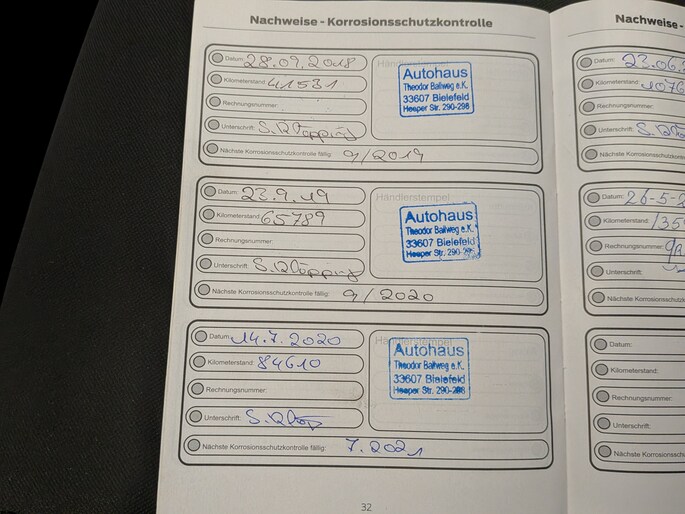 Nachweise - Korrosionsschutzkontrolle
Datum: 28.09.2018
Händlerstempel
Kilometerstand: 41531
Autohaus
Theodor Ballweg e.K.
33607 Bielefeld
Heeper Str. 290-298
Rechnungsnummer:
Unterschrift:
Nächste Korrosionsschutzkontrolle fällig: 9/2019
Datum: 23.9.19
Händlerstempel
Kilometerstand: 65789
Autohaus
Theodor Ballweg e.K.
33607 Bielefeld
Heeper Str. 290-298
Rechnungsnummer:
Unterschrift:
Nächste Korrosionsschutzkontrolle fällig: 9/2020
Datum: 14.7.2020
Händlerstempel
Kilometerstand: 84610
Autohaus
Theodor Ballweg e.K.
33607 Bielefeld
Heeper Str. 290-298
Rechnungsnummer:
Unterschrift:
Nächste Korrosionsschutzkontrolle fällig: 7.2021
32
Nachweise -
Datum: 23.06.
Kilometerstand: 1076
Rechnungsnummer:
Unterschrift:
Nächste Korrosionsschutzkon
Datum: 26-5-2
Kilometerstand: 135
Rechnungsnummer:
Unterschrift:
Nächste Korrosionsschutz
Datum:
Kilometerstand:
Rechnungsnummer:
Unterschrift:
Nächste Korrosionsschutz